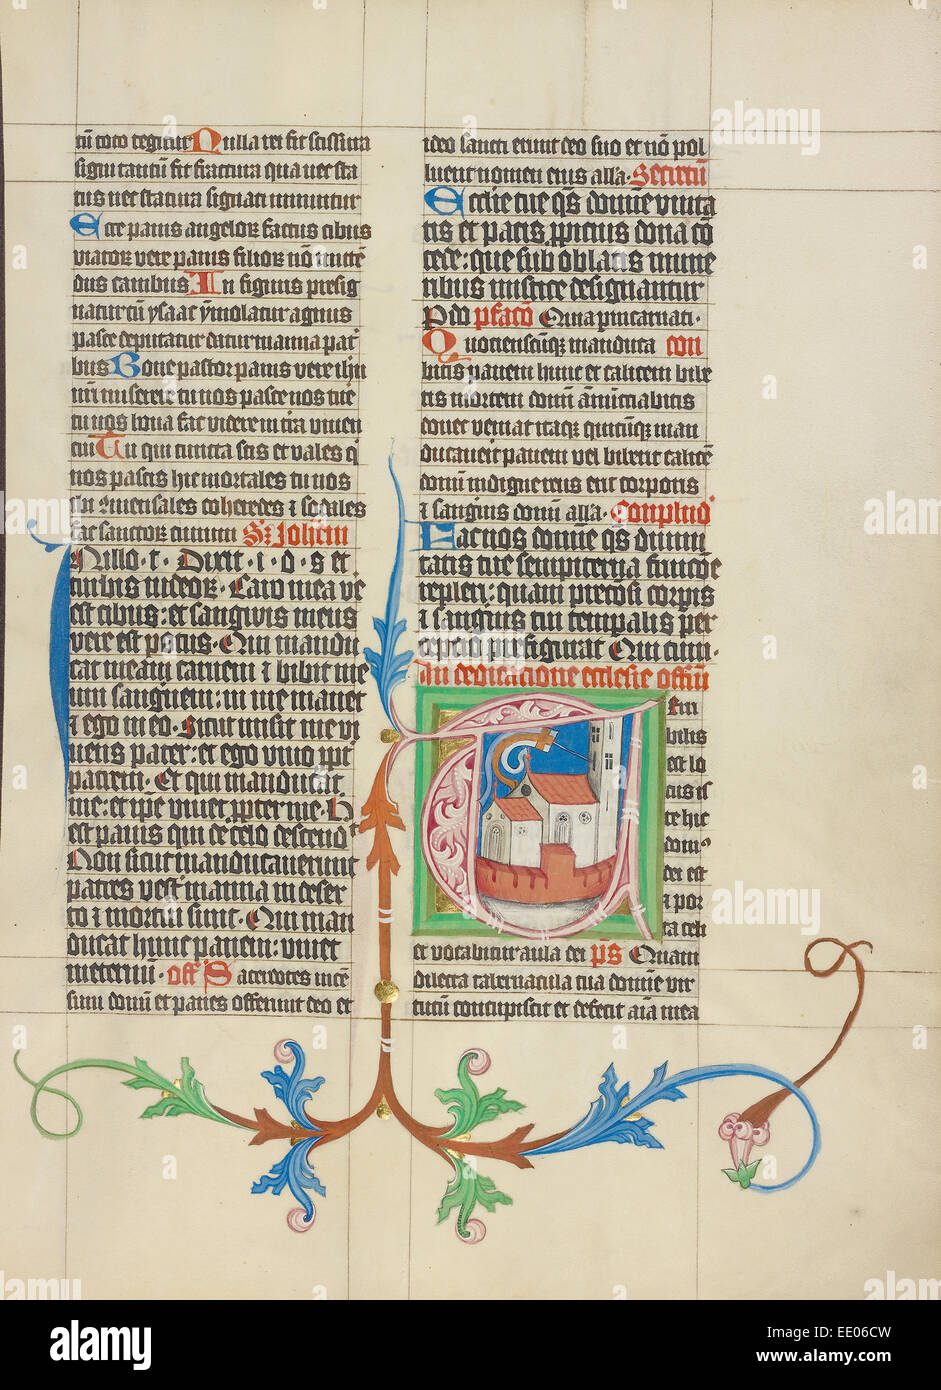 tū toto tegitur Nulla rei fit scissura
signi tantū fit fractura qua nec sta
tus nec statura signati minuitur
Ecce panis angeloꝝ factus cibus
viatoꝝ vere panis filioꝝ nō mittē
dus canibus In figuris presig
natur cū ysaac ymolatur agnus
pasce deputatur datur manna pat
bus Bone pastor panis vere ihū
nr̄i miserere tu nos pasce nos tue
tu nos bona fac videre in t̄ra viven
tiū Tu qui cuncta scis et vales q
nos pascis hic mortales tu nos
coheredes ⁊ sodales
fac sanctoꝝ civium Sc̄ Johem
Jn illo · t · Dixit · i · d · s · et
turbis iudeoꝝ · Caro mea ve
est cibus: et sangwis meus
vere est potus · Qui mandu
cat meam carnem ⁊ bibit me
um sanguinem: in me manet
⁊ ego in eo · Sicut misit me vi
vens pater: et ego vivo ꝓpt
patrem · Et qui manducat
me: et ip̄e vivet ꝓpter me · H
est panis qui de celo descend
Non sicut manducaverunt
patres vesti manna in deser
to ⁊ mortui sunt · Qui man
ducat hunc panem: vivet
in eternū · Off Sacerdotes incē
sum domī et panes offerunt deo et
ideo sancti erunt deo suo et nō pol
luent nomen eius alla · Secretū
Ecclie tue qs domine unita
tis et pacis ꝓpicius dona cō
cede: que sub oblatis mune
ribus mistice designantur
P do p̄facō Quia p incarnati ·
Quotienscūqꝫ manduca Con
bitis panem hunc et calicem bibe
tis mortem domī ānunciabitis
donec veniat itaqꝫ quicūqꝫ man
ducaverit panem vel biberit calicē
domī indigne reus erit corporis
⁊ sanguis domī alla · Conplēd
Fac nos domīe qs divini
tatis tue sempiterna fruicōe
repleri: quam preciosi corpis
⁊ sanguis tui temporalis per
cepcio prefigurat Qui cum ·
In dedicatione ecclesie offiū
Terri
bilis
est lo
cus is
te hic
dom⁹
dei est
⁊ por
ta celi
et vocabitur aula dei ps Quam
dilecta tabernacula tua domine vir
tutū concupiscit et deficit aīa mea
alamy
a
alamy stock photo
EE06CW
www.alamy.com